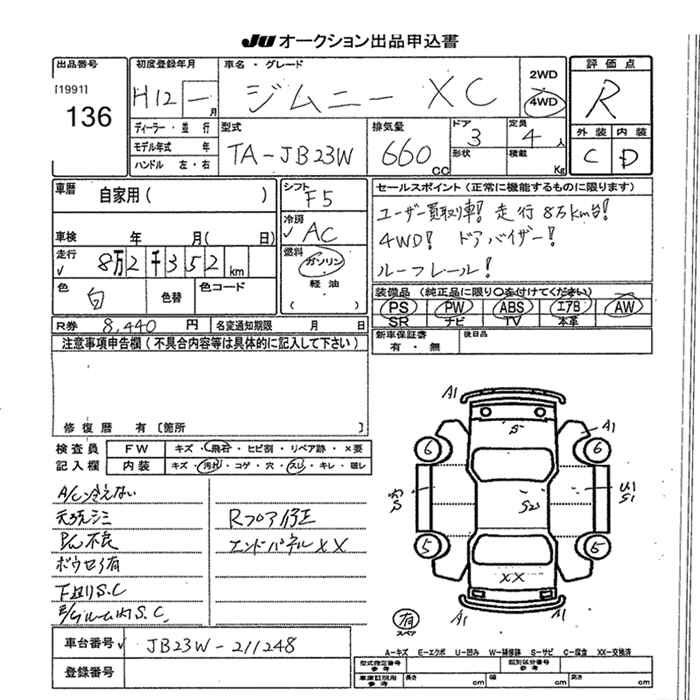 JU オークション出品申込書
出品番号
[1991]
136
初度登録年月
H12 一 月
車名・グレード
ジムニー XC
2WD
4WD
評価点
R
外装 内装
C D
ディーラー・並行
モデル年式 年
ハンドル 左・右
型式
TA-JB23W
排気量
660 cc
ドア
3
形状
定員
4 人
積載
Kg
車歴
自家用( )
シフト
F5
車検 年 月( 日)
冷房
√ AC
走行
√ 8万2千352 km
燃料
ガソリン
軽油
( )
色
白
色替
色コード
R券 8,440 円
名変通知期限 月 日
セールスポイント(正常に機能するものに限ります)
ユーザー買取り車! 走行8万km台!
4WD! ドアバイザー!
ルーフレール!
装備品(純正品に限り○を付けてください)
PS PW ABS エアB AW
SR ナビ TV 本革
新車保証書
有・無
後日品
注意事項申告欄(不具合内容等は具体的に記入して下さい)
修復歴 有〔箇所 〕
検査員
記入欄
FW キズ・飛石・ヒビ割・リペア跡・×要
内装 キズ・汚れ・コゲ・穴・スレ・キレ・破レ
A/C冷えない
天張シミ
P/W不良
ボウセイ有
下廻りS.C
E/gルーム内S.C.
Rフロア修正
エンドパネルXX
A1
S
A1
6
6
S
S2
S1
5
5
XX
A1
A1
有
スペア
A-キズ E-エクボ U-凹み W-補修跡 S-サビ C-腐食 XX-交換済
車台番号 √ JB23W-211248
登録番号
型式指定番号
参考
類別区分番号
参考
車庫証明用
参考
長さ cm
幅 cm
高さ cm